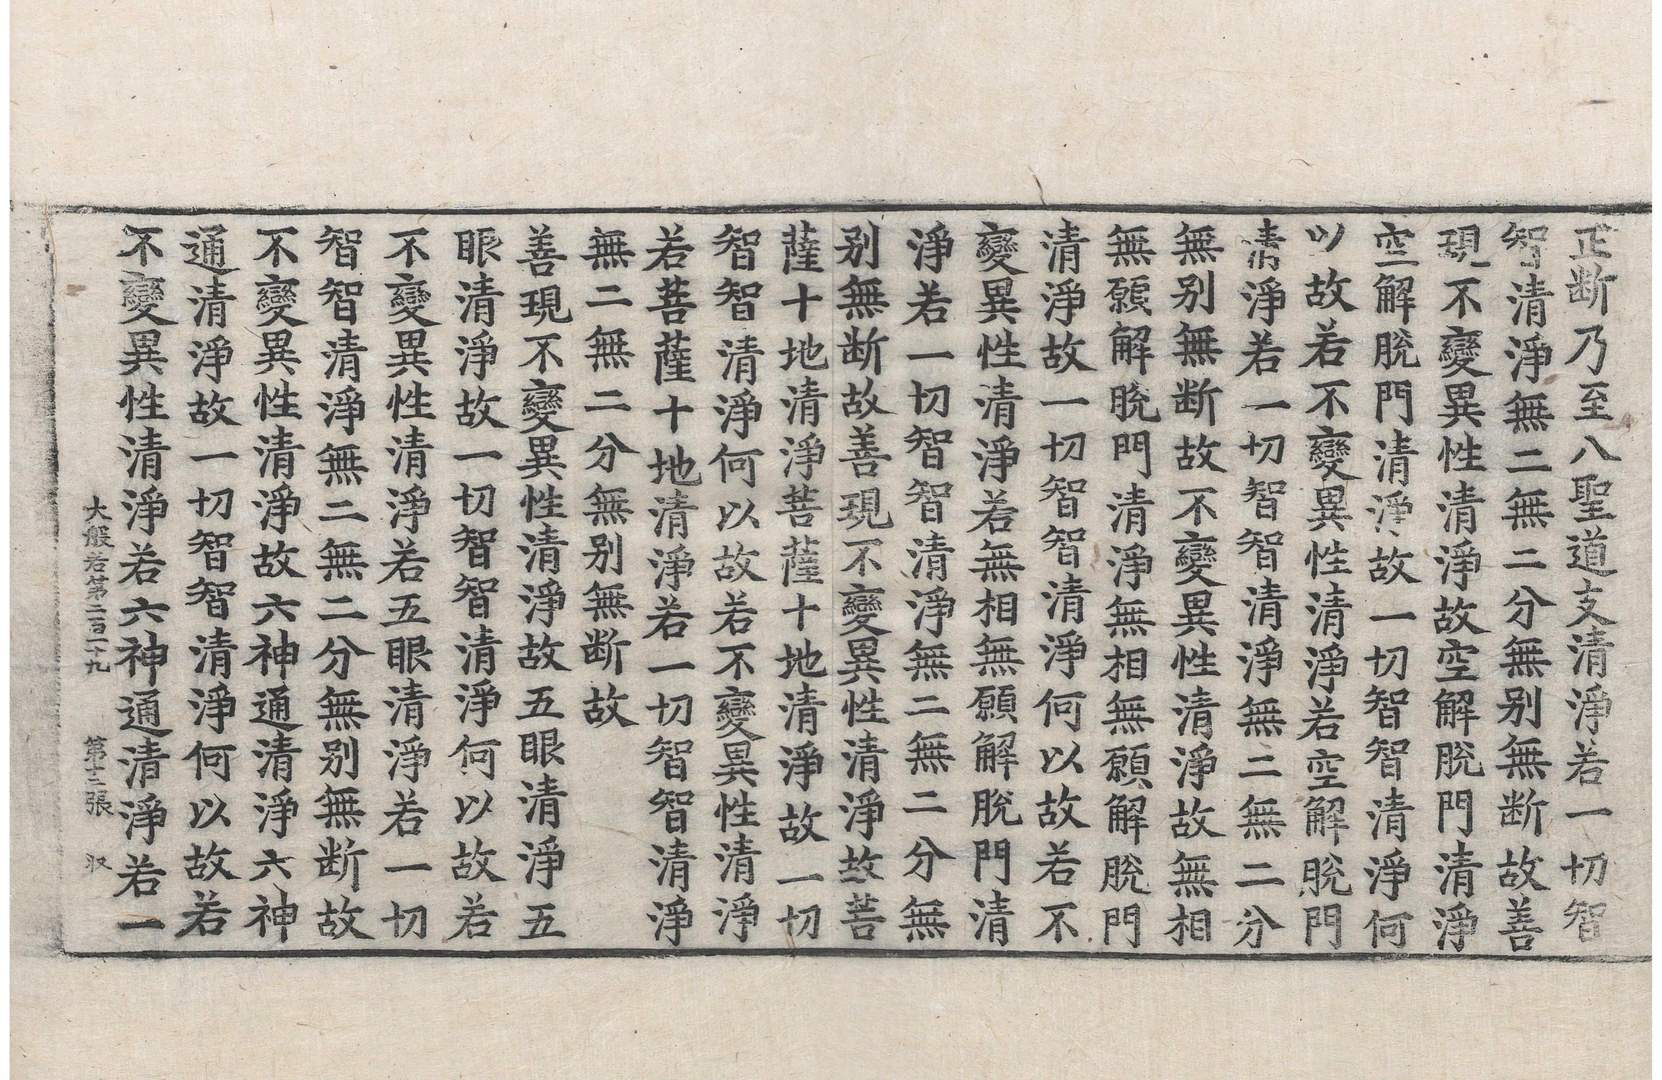 正断乃至八聖道支清淨若一切智
智清淨無二無二分無别無断故善
現不變異性清淨故空解脫門清淨
空解脫門清淨故一切智智清淨何
以故若不變異性清淨若空解脫門
清淨若一切智智清淨無二無二分
無别無断故不變異性清淨故無相
無願解脫門清淨無相無願解脫門
清淨故一切智智清淨何以故若不
變異性清淨若無相無願解脫門清
淨若一切智智清淨無二無二分無
别無断故善現不變異性清淨故菩
薩十地清淨菩薩十地清淨故一切
智智清淨何以故若不變異性清淨
若菩薩十地清淨若一切智智清淨
無二無二分無别無断故
善現不變異性清淨故五眼清淨五
眼清淨故一切智智清淨何以故若
不變異性清淨若五眼清淨若一切
智智清淨無二無二分無别無断故
不變異性清淨故六神通清淨六神
通清淨故一切智智清淨何以故若
不變異性清淨若六神通清淨若一
大般若第二百二十九 第十二張 収